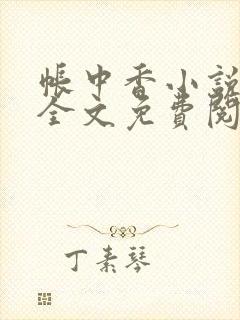 帳中香小說
全文免費閱
丁素琴